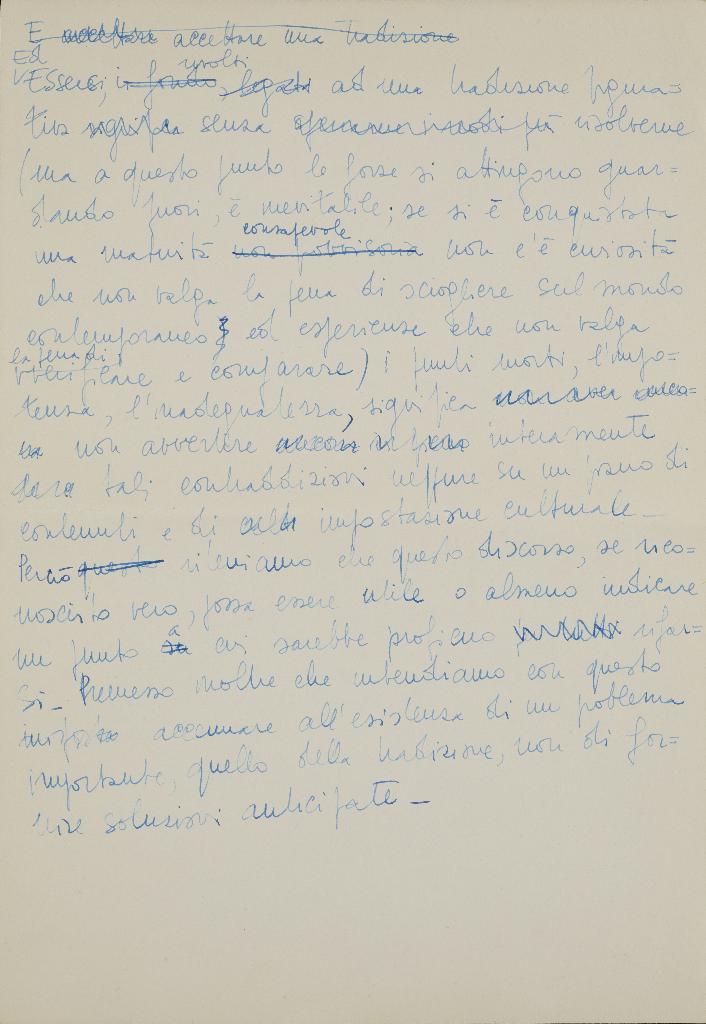 E accettare accettare una tradizione
Ed rivolti
Esserci, in fondo, legati ad una tradizione figura=
tiva significa senza risolverne
(ma a questo punto le forze si attingono guar=
dando fuori, è inevitabile; se si è conquistata
consapevole
una maturità non provvisoria non c'è curiosità
che non valga la pena di sciogliere sul mondo
contemporaneo ed esperienze che non valga
la pena di
verificare e comparare) i punti morti, l'impo=
tenza, l'inadeguatezza, significa non aver anco=
ra non avvertire ancora interamente
tali contraddizioni neppure su un piano di
contenuti e di impostazione culturale_
Perciò questo riteniamo che questo discorso, se rico=
nosciuto vero, possa essere utile o almeno indicare
a
un punto su cui sarebbe proficuo rifar=
si_ Premesso inoltre che intendiamo con questo
accennare all'esistenza di un problema
importante, quello della tradizione, non di for=
nire soluzioni anticipate_